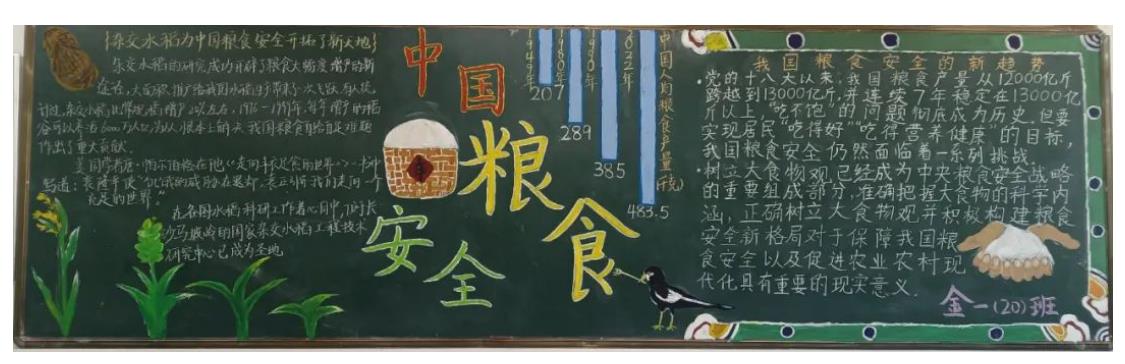 {杂交水稻为中国粮食安全开拓了新天地}
杂交水稻的研究成功开辟了粮食大幅度增产的新
途径,大面积推广给我国水稻
作出了重大贡献.
美国学者唐·帕尔伯格在他《走向丰衣足食的世界》一书中
写道:袁隆平使"饥饿的威胁在退却,袁正引导我们走向一个
充足的世界"
在各国水稻科研工作者心目中,位于长
沙马坡岭的国家杂交水稻工程技术
研究中心已成为圣地
中国
粮食
安全
1949年
207
1980年
289
1990年
385
2022年
483.5
中国人均粮食产量(千克)
我国粮食安全的新趋势
·党的十八大以来,我国粮食产量从12000亿斤
跨越到13000亿斤,并连续7年稳定在13000亿
斤以上,"吃不饱"的问题彻底成为历史,但要
实现居民"吃得好""吃得营养健康"的目标,
我国粮食安全仍然面临着一系列挑战.
·树立大食物观已经成为中央粮食安全战略
的重要组成部分,准确把握大食物的科学内
涵,正确树立大食物观并积极构建粮食
安全新格局对于保障我国粮
食安全以及促进农业农村现
代化具有重要的现实意义.
金一(20)班